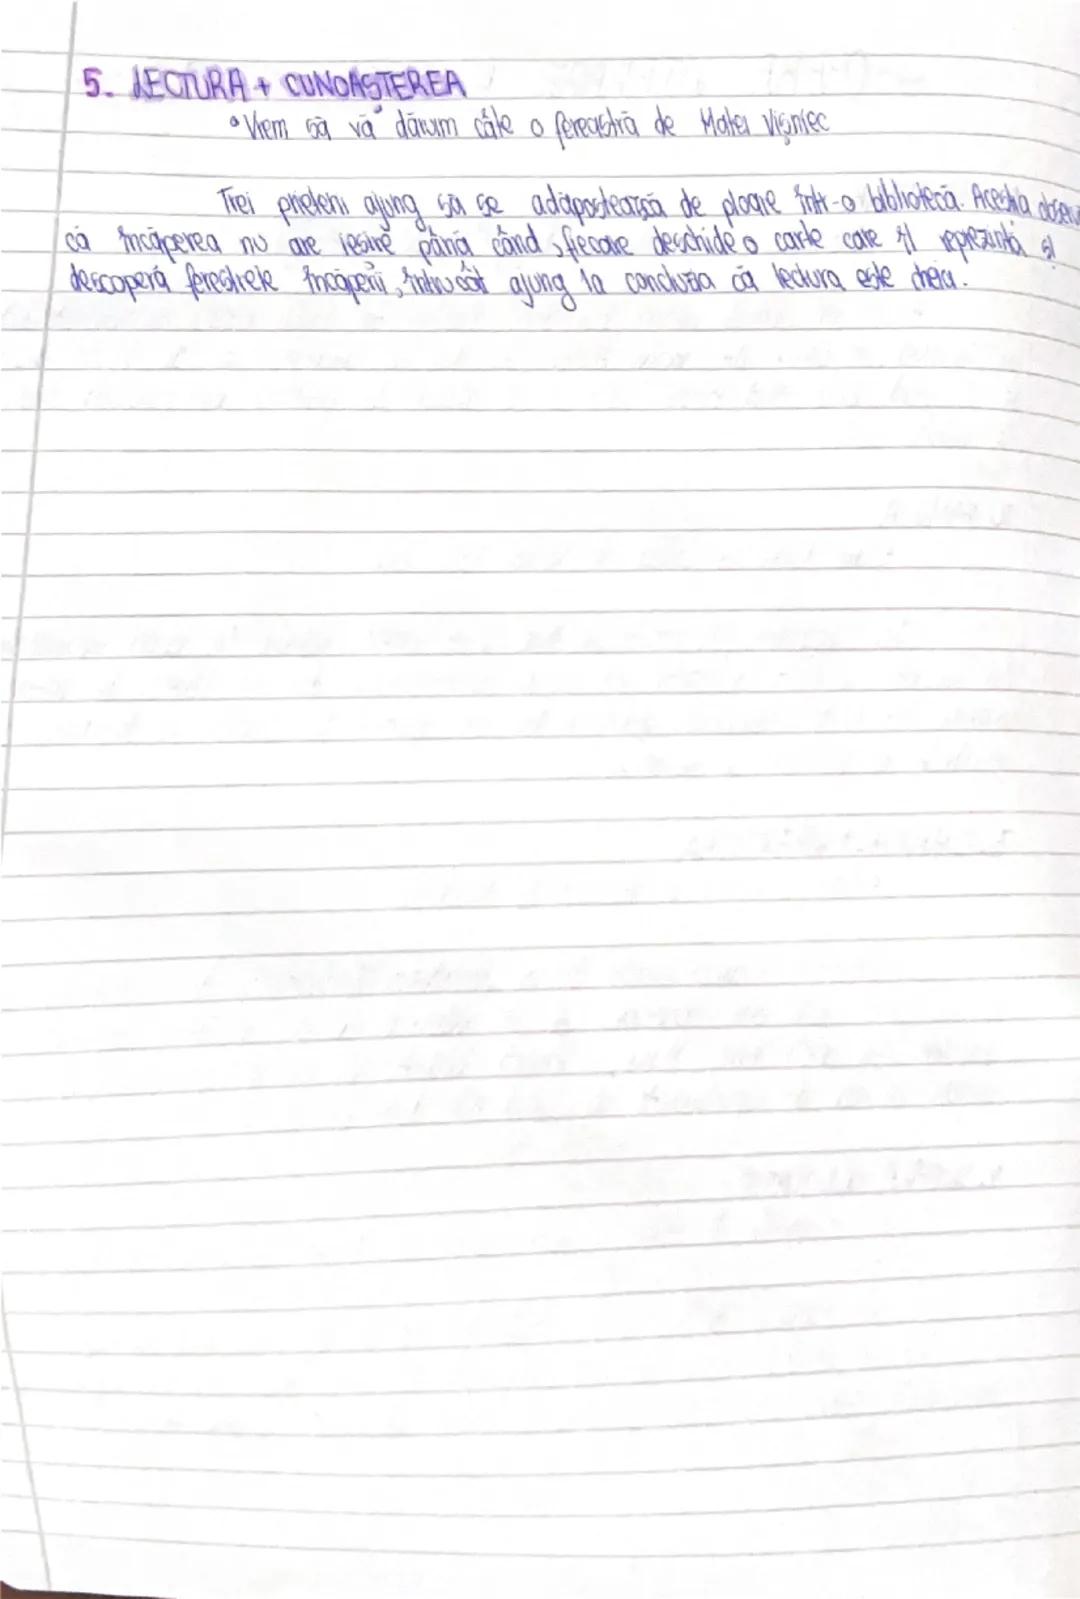 5. LECTURA + CUNOAȘTEREA
• Vrem să vă dăruim câte o fereastră de Matei Vișniec
Trei prieteni ajung să se adăpostească de ploaie într-o bibliotecă. Aceștia
că încăperea nu are ieșire până când, fiecare deschide o carte care îl reprezintă și
descoperă ferestrele încăperii, întrucât ajung la concluzia că lectura este cheia.